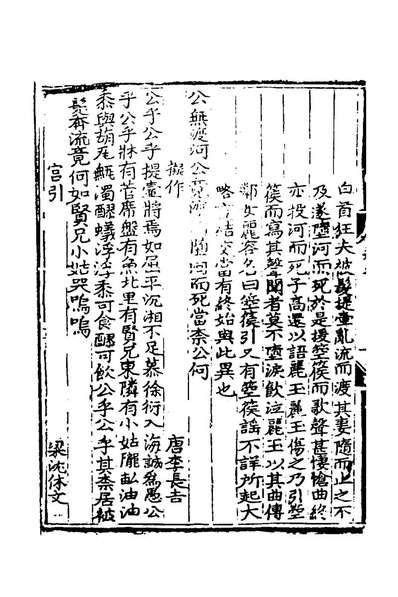 白首狂夫被髮提壺亂流而渡其妻隨而止之不
及遂墮河而死於是援箜篌而歌聲甚悽愴曲終
亦投河而死子高還以語麗玉麗玉傷之乃引箜
篌而寫其聲聞者莫不墮淚飲泣麗玉以其曲傳
鄰女麗容名曰箜篌引又有箜篌謠不詳所起大
略言結交當有終始與此異也
公無渡河公竟渡河墮河而死當柰公何
擬作 唐李長吉
公乎公乎提壺將焉如屈平沉湘不足慕徐衍入海誠爲愚公
乎公乎牀有菅席盤有魚北里有賢兄東隣有小姑隴畝油油
黍與葫瓦甒濁醪蟻浮浮黍可食醪可飲公乎公乎其柰居被
髮奔流竟何如賢兄小姑哭嗚嗚
宮引 梁沈休文